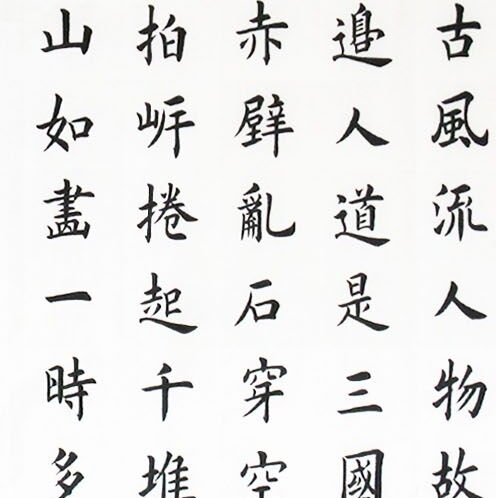 古風流人物故
邊人道是三國
赤壁亂石穿空
拍岸捲起千堆
山如畫一時多